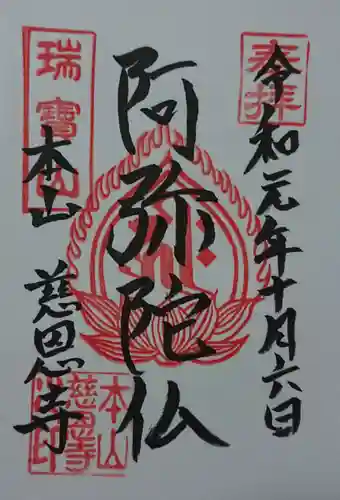 奉拝
令和元年十月六日
阿弥陀仏
瑞寶山
本山
慈恩寺
本山
慈恩寺